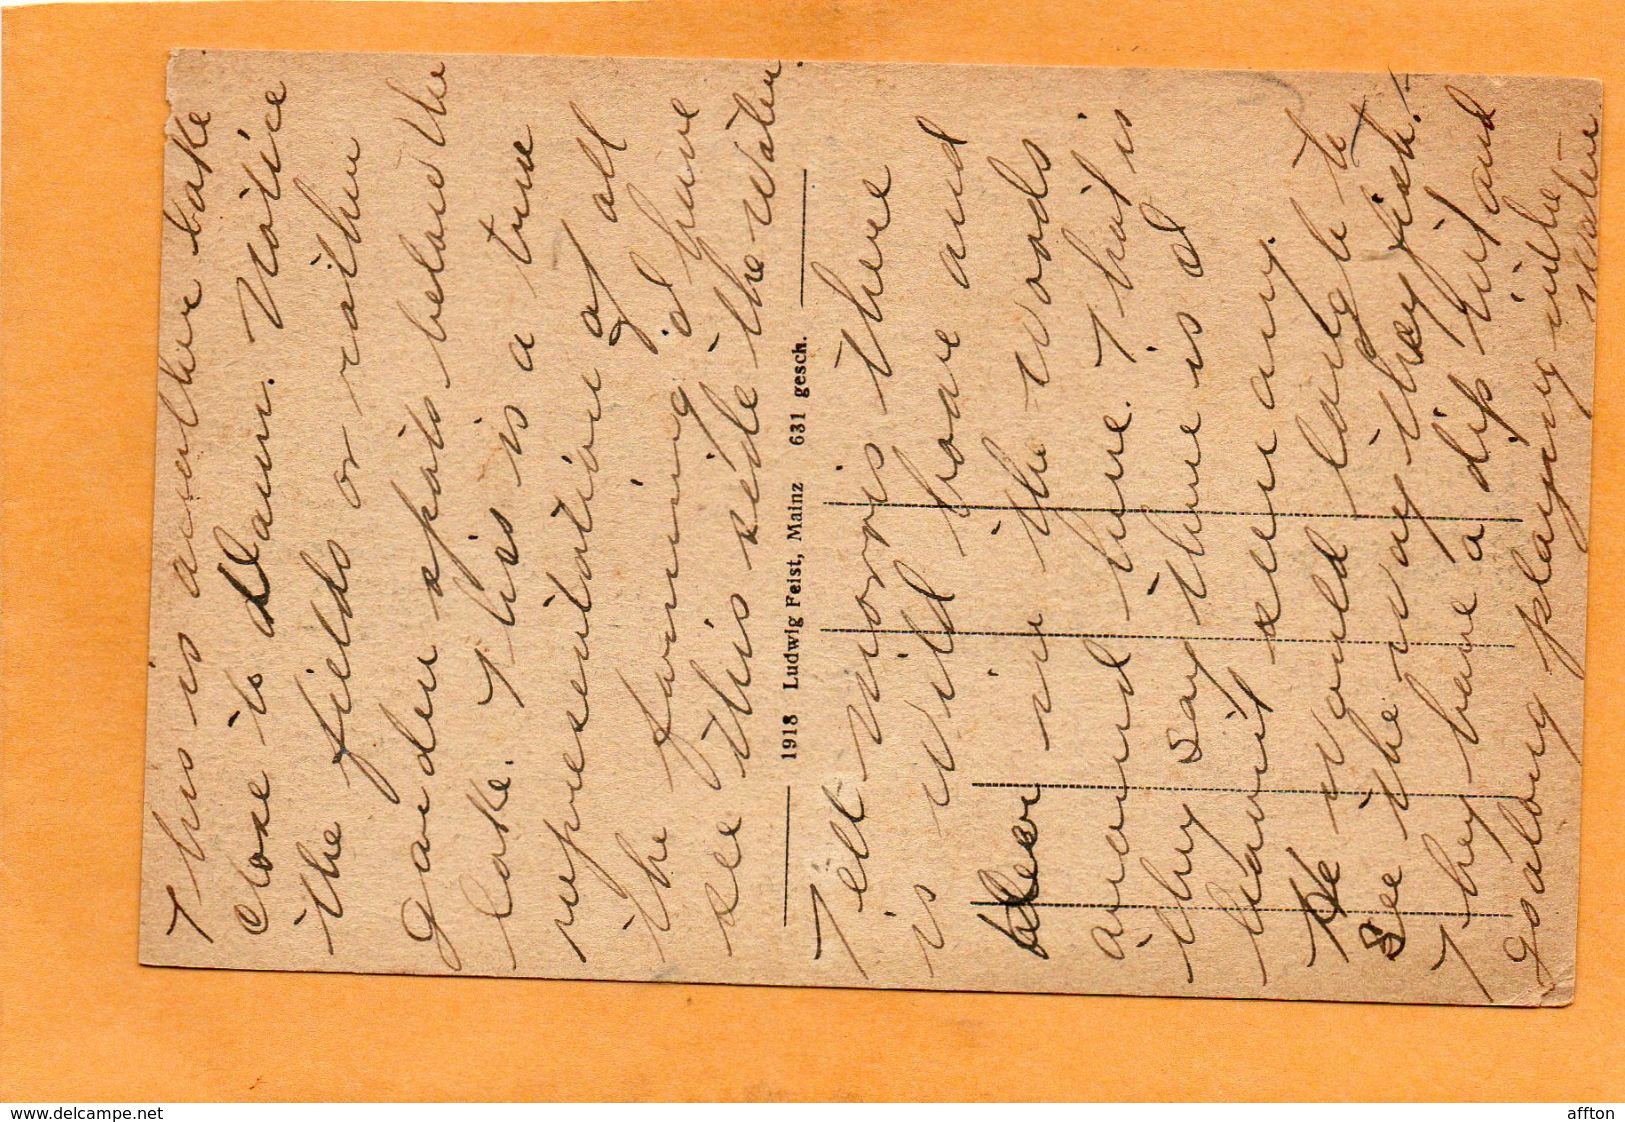 This is another lake
close to Daun. Notice
the fields or rather
garden spots below the
lake. This is a true
representation of all
the farming I have
see this side the water.
1918 Ludwig Feist, Mainz 631 gesch.
Tell Morris there
is wild hoare and
deer in the woods
around here. That is
they say there is I
havnt seen any.
He would laugh to
see the way they fish!
They have a dip net and
go along playing in the
water
www.delcampe.net
affton